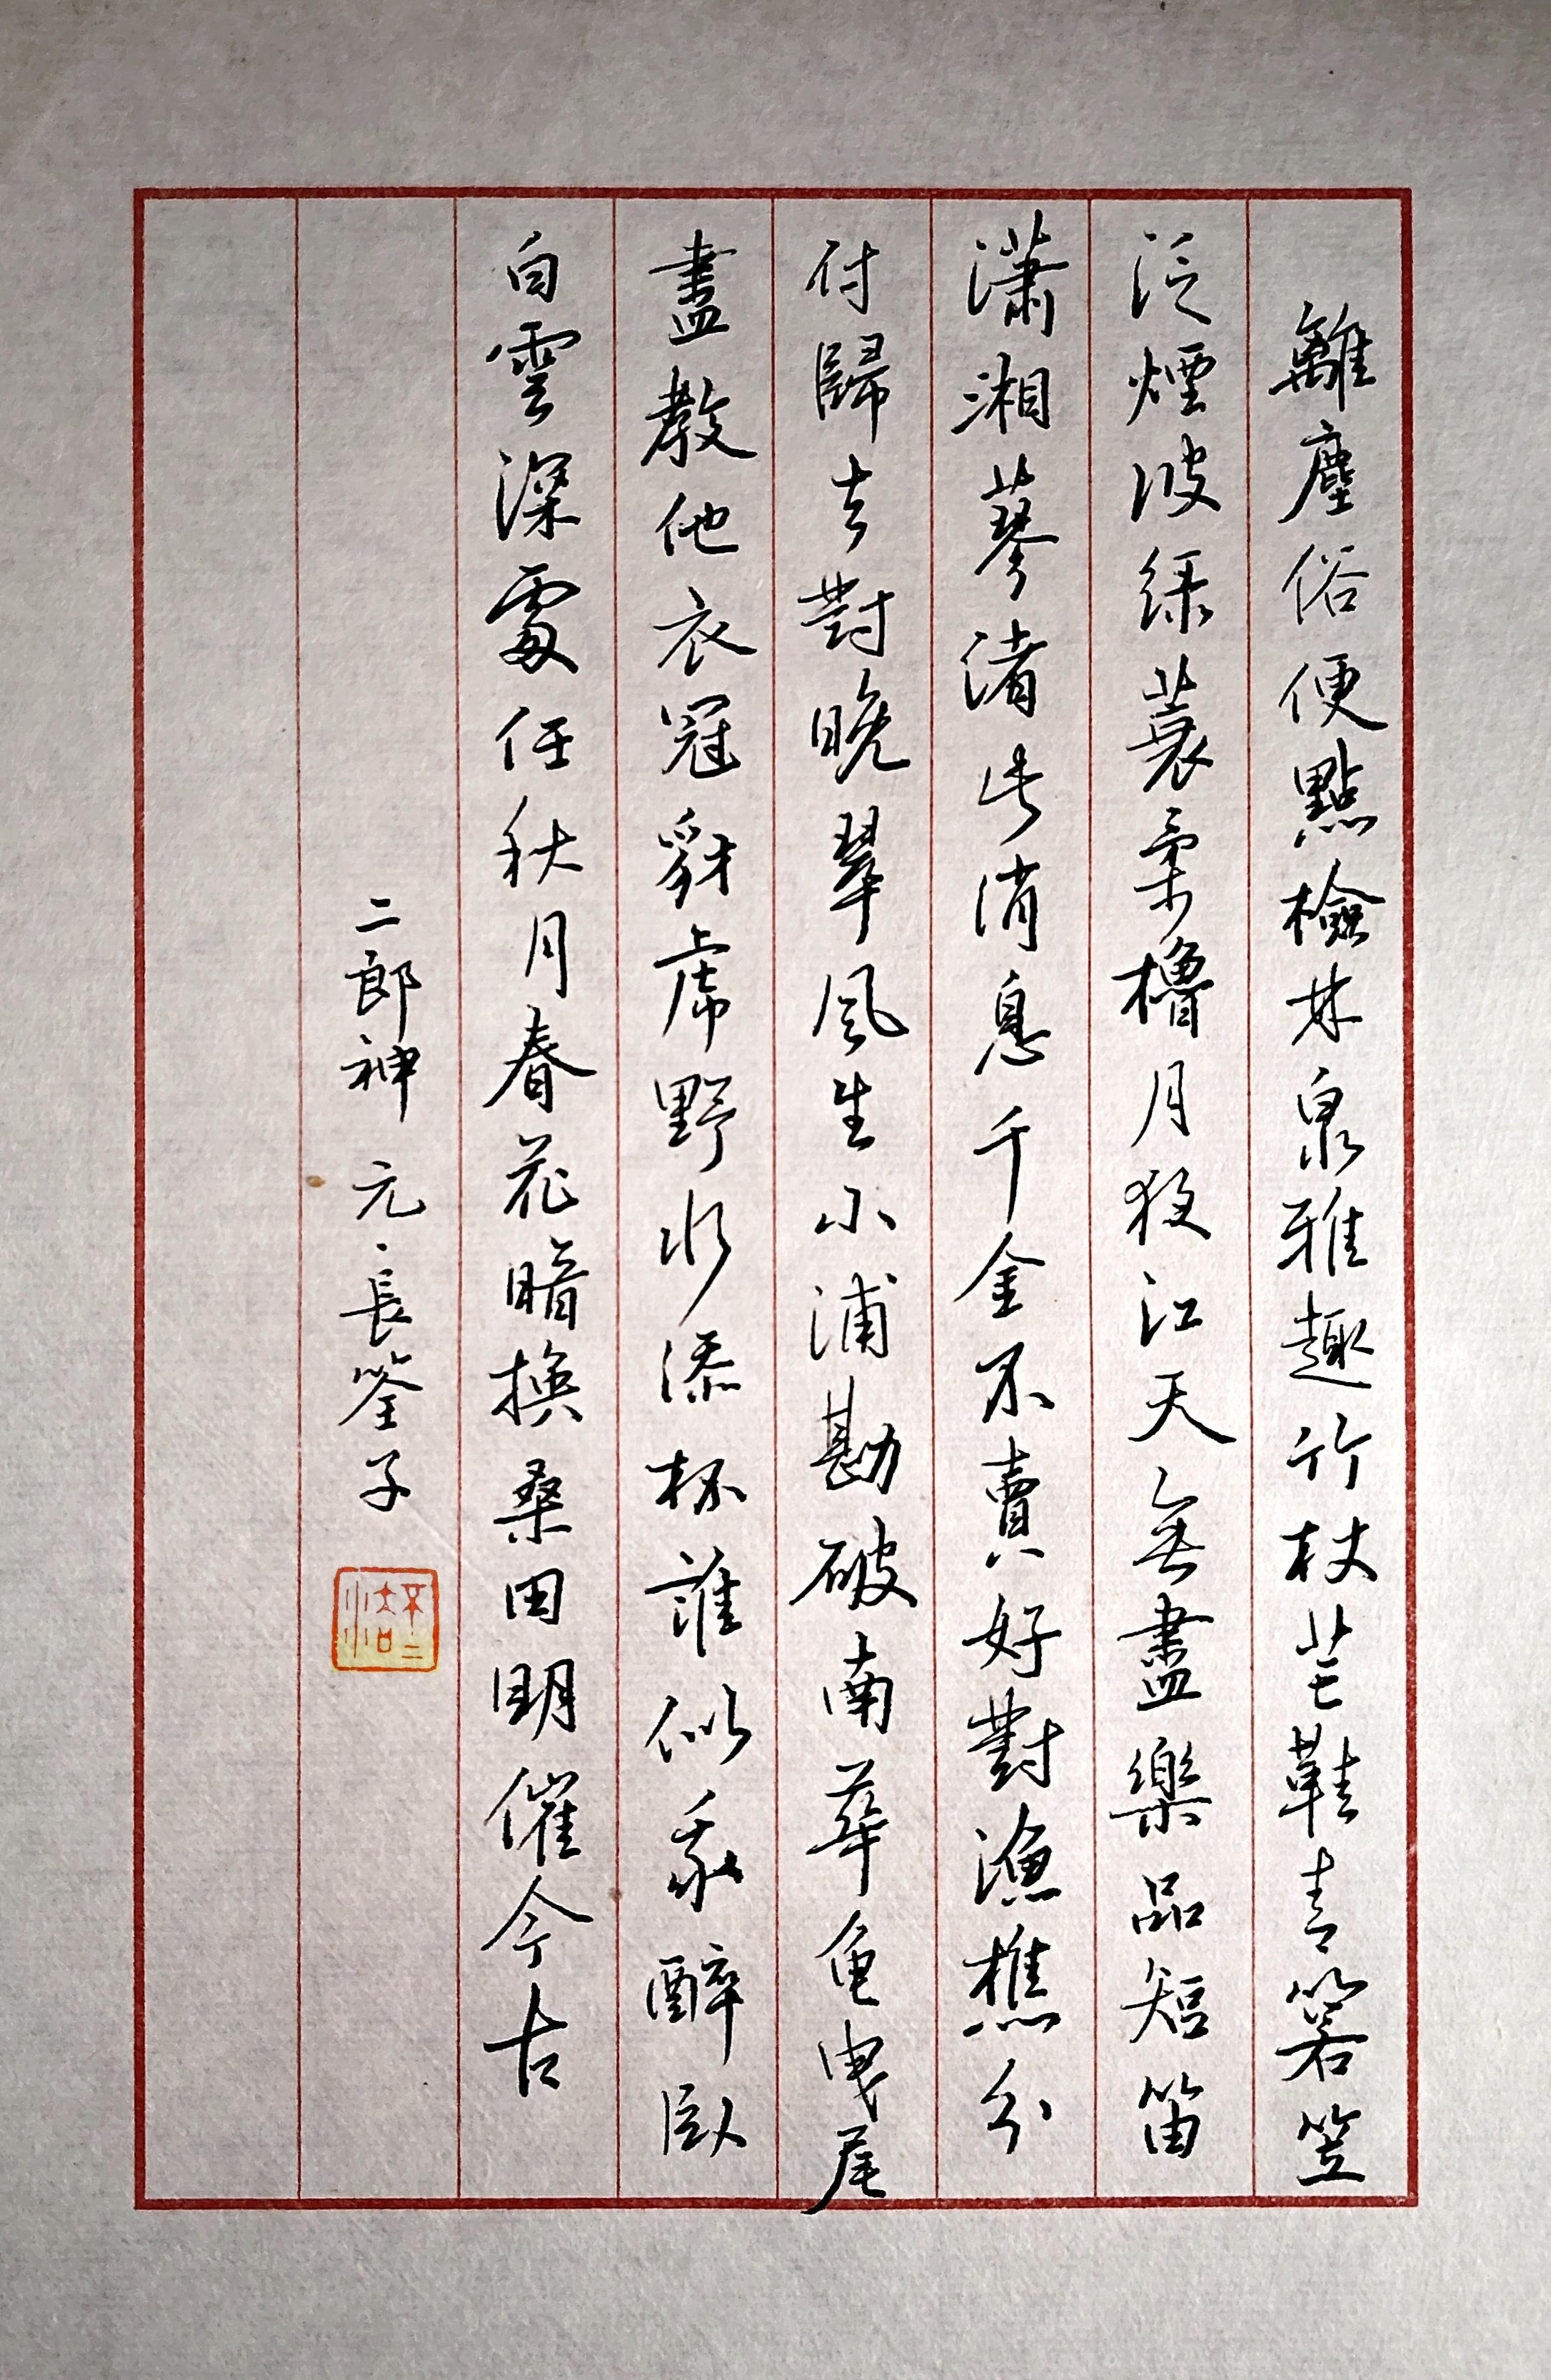 離塵俗便點檢林泉雅趣竹杖芒鞋青箬笠
泛煙波綠蓑柔櫓月殺江天無盡樂品短笛
瀟湘蓼渚此消息千金不賣好對漁樵分
付歸去對晚翠風生小浦勘破南華龜曳尾
盡教他衣冠豺虎野水添杯誰似我醉臥
白雲深處任秋月春花暗換桑田明催今古
二郎神 元·長筌子